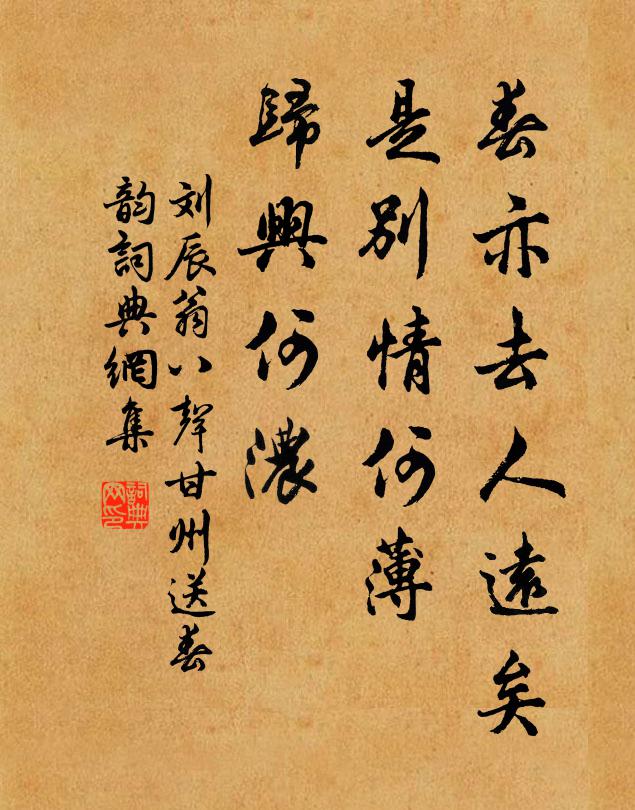 春亦去人遠矣
是別情何薄
歸興何濃
刘辰翁八聲甘州送春
韵詞典網集
詞典网印